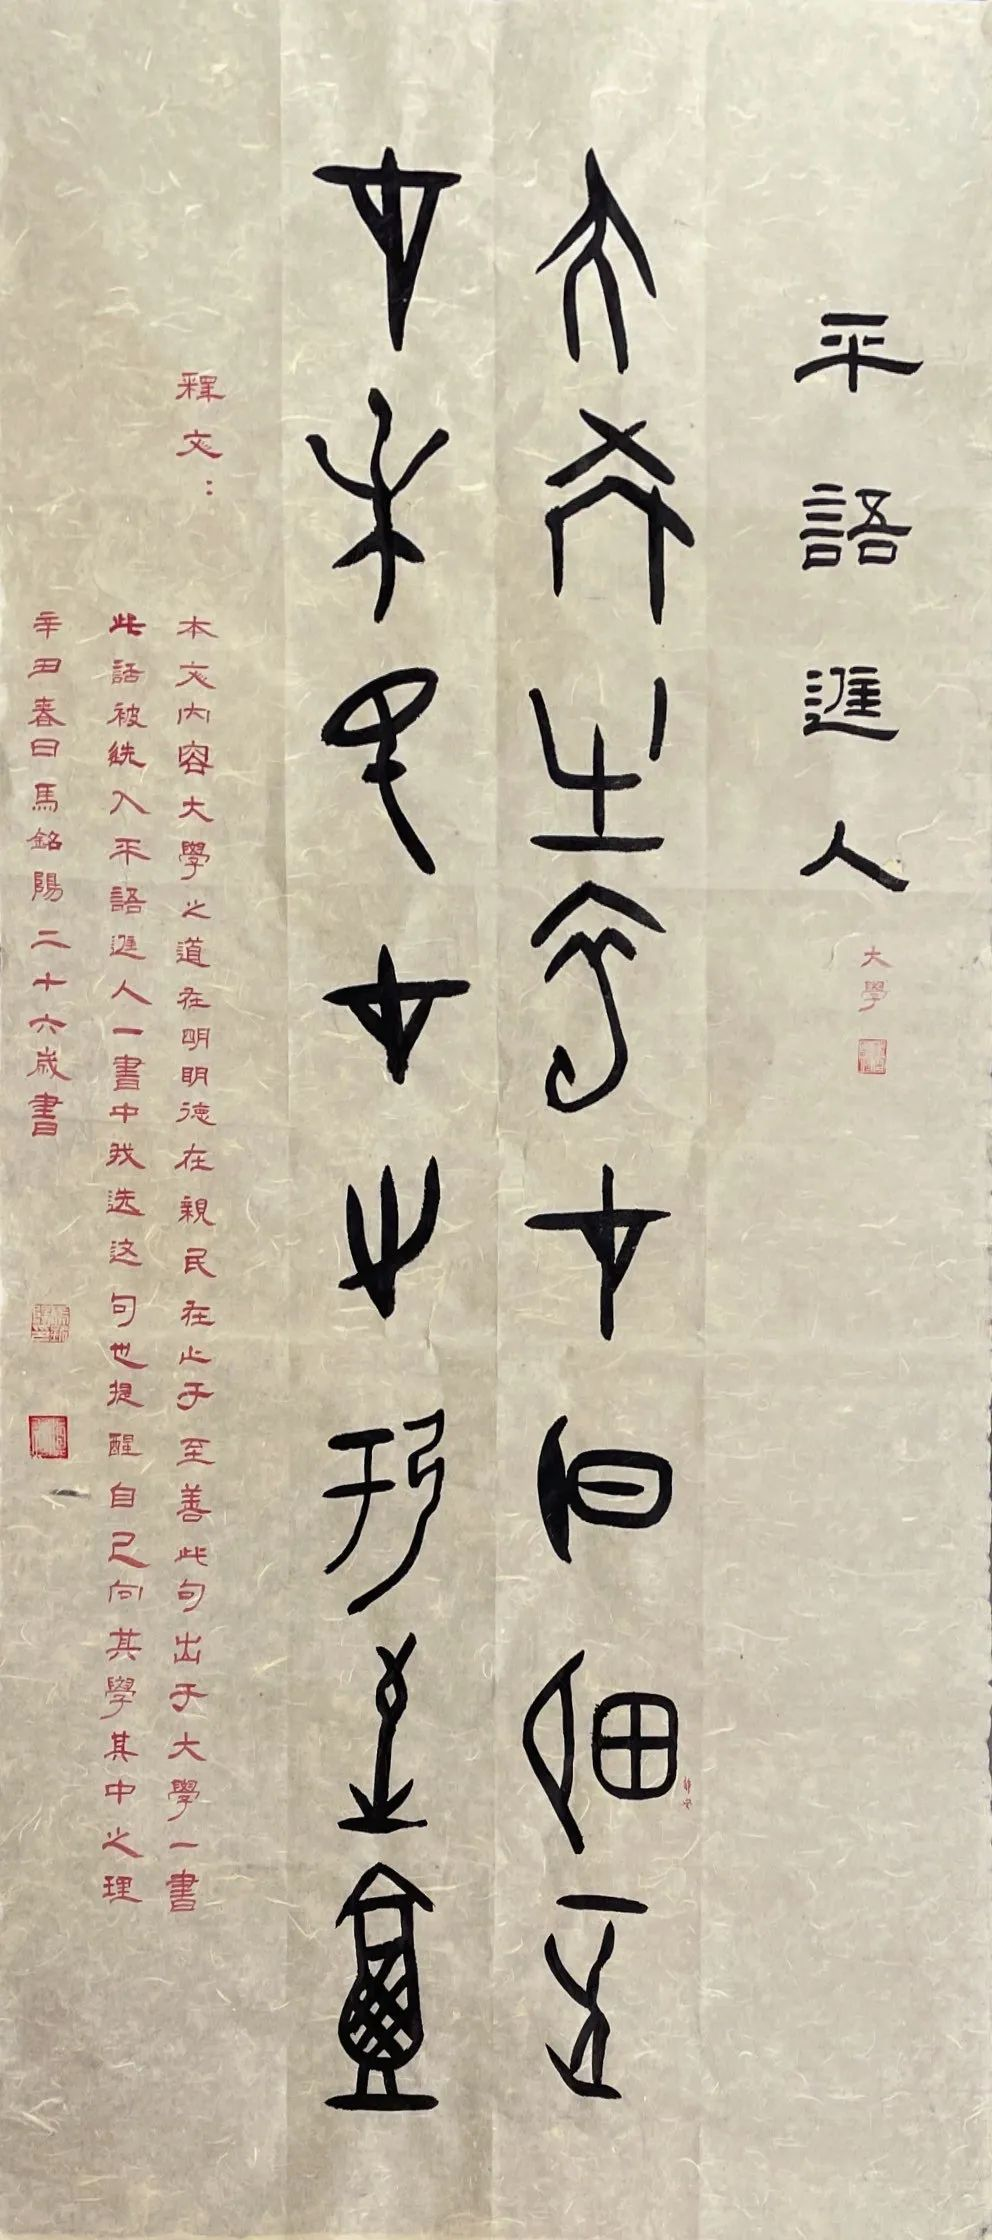 平語進人
大學
大學之道在明明德
在親民在止于至善
释文：
本文内容大學之道在明明德在親民在止于至善此句出于大學一書
此話被统入平語進人一書中我选这句也提醒自己向其學其中之理
辛丑春日馬銘陽二十六歲書